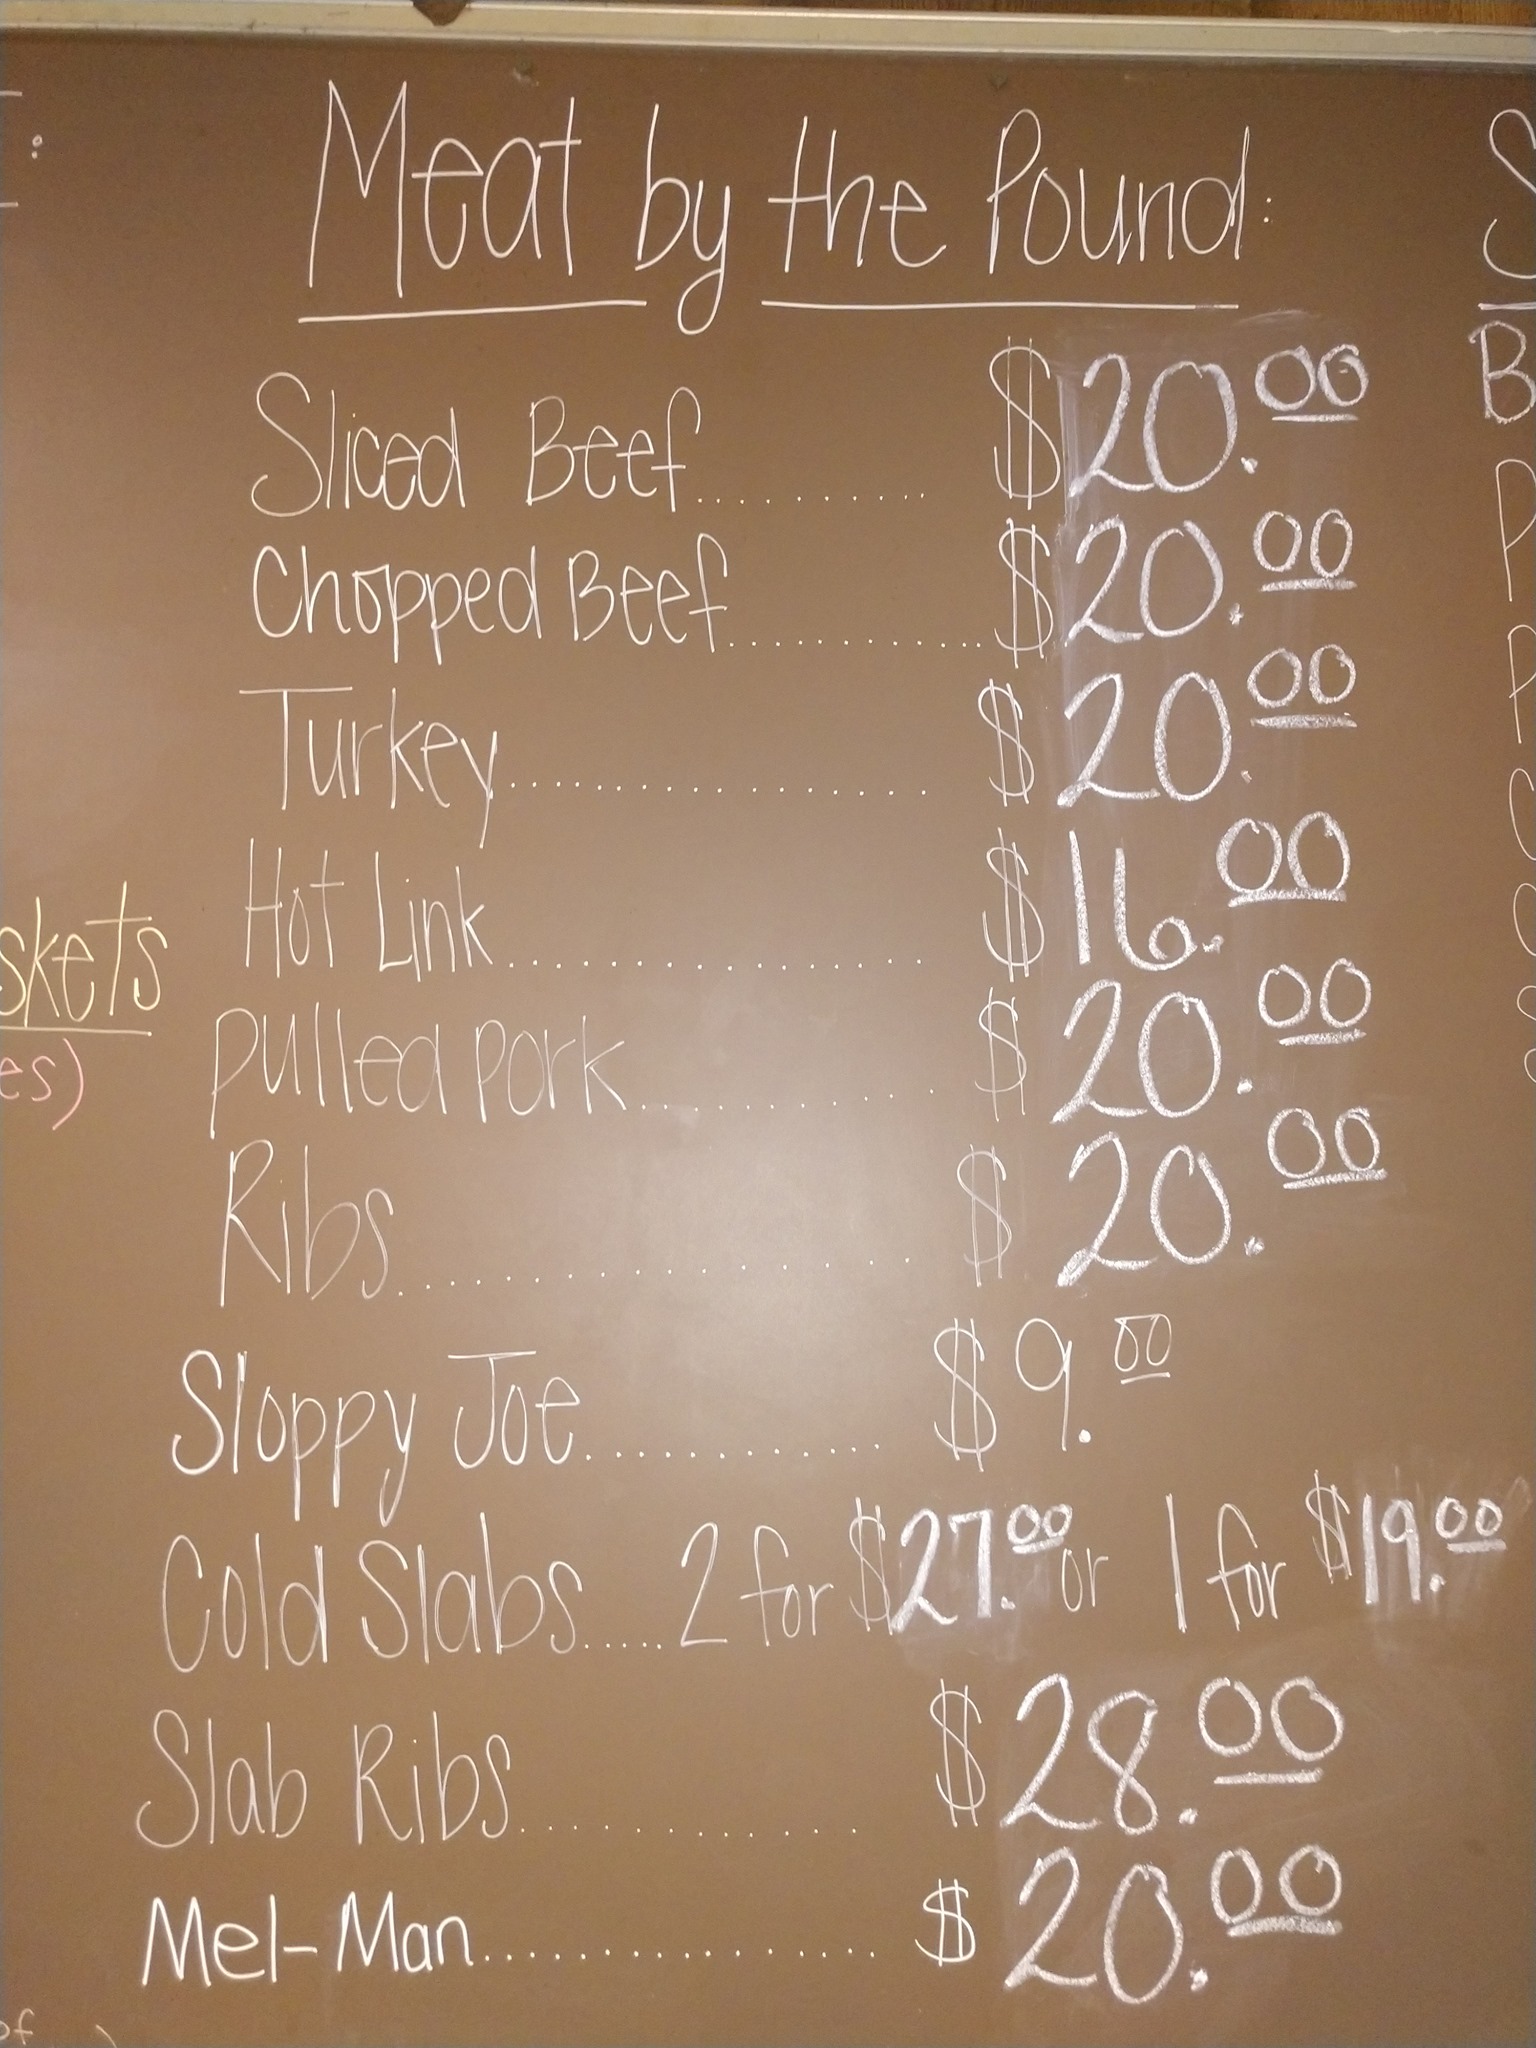 Meat by the Pound:
Sliced Beef.......... $20.00
Chopped Beef............ $20.00
Turkey................. $20.00
Hot Link................. $16.00
Pulled Pork............. $20.00
Ribs................... $20.00
Sloppy Joe............ $9.00
Cold Slabs..... 2 for $27.00 or 1 for $19.00
Slab Ribs............. $28.00
Mel-Man................ $20.00
skets
es)
of )
S
B
P
P